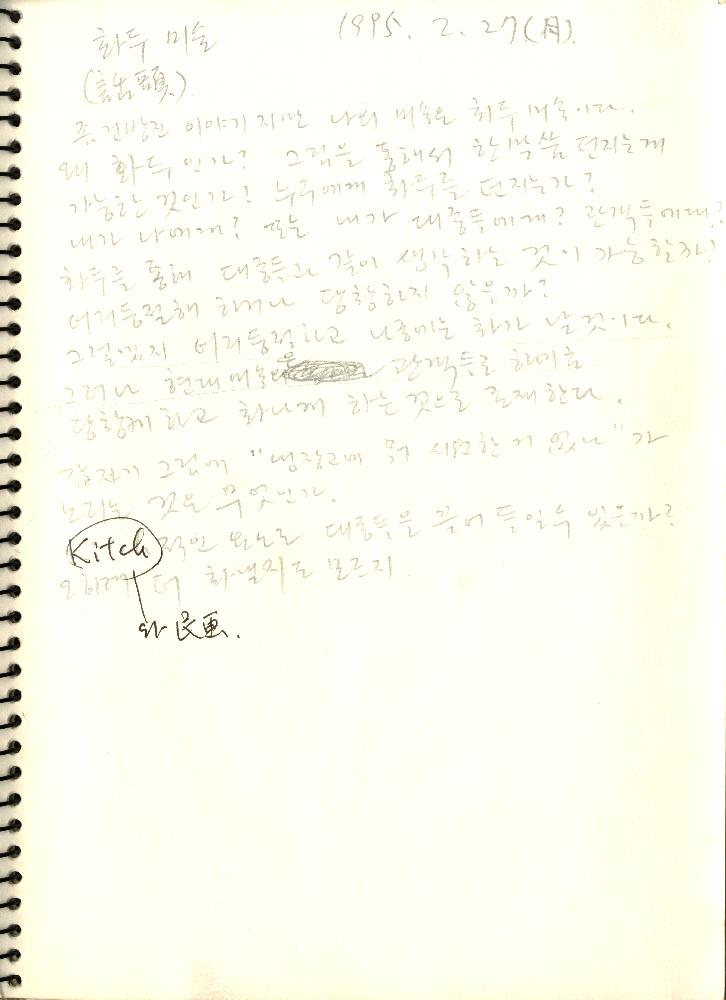 화두 미술 1995. 2. 27(月).
(話頭)
좀 건방진 이야기지만 나의 미술은 화두 미술이다.
왜 화두인가? 그림을 통해서 한 말씀 던지는게
가능한 것인가! 누구에게 화두를 던지는가?
내가 나에게? 또는 내가 대중들에게? 관객들에게?
화두를 통해 대중들과 같이 생각하는 것이 가능할까!
어리둥절해 하거나 당황하지 않을까?
그렇겠지 어리둥절하고 나중에는 화가 날 것이다.
그러나 현대미술은 관객들로 하여금
당황케하고 화나게 하는 것으로 존재한다.
갑자기 그림에 "냉장고에 뭐 시원한거 없나"가
노리는 것은 무엇인가.
Kitch적인 요소로 대중들을 끌어 들일수 있을까?
오히려 더 화낼지도 모르지.
와 民画.